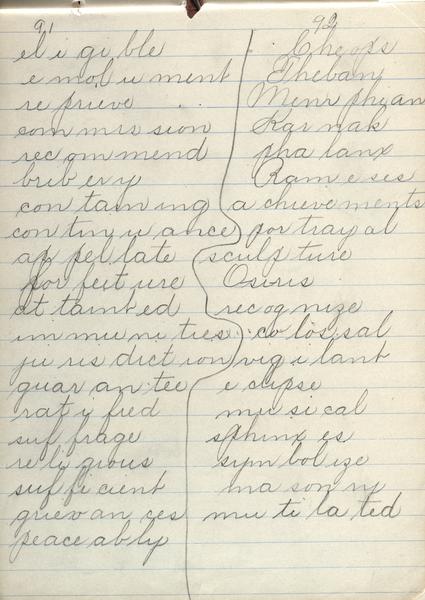 91
el i gi ble
e mol u ment
re prieve
com mis sion
rec om mend
brib er y
con tain ing
con tin u ance
ap pel late
for feit ure
at taint ed
im mu ni ties
ju ris dict ion
guar an tee
rat i fied
suf frage
re lig ious
suf fi cient
griev an ces
peace ab ly
92
Cheops
Theban
Mem phi an
Kar nak
pha lanx
Ram e ses
a chieve ments
por tray al
sculp ture
Osiris
rec og nize
co los sal
vig i lant
e clipse
mu si cal
sphinx es
sym bol ize
ma son ry
mu ti la ted